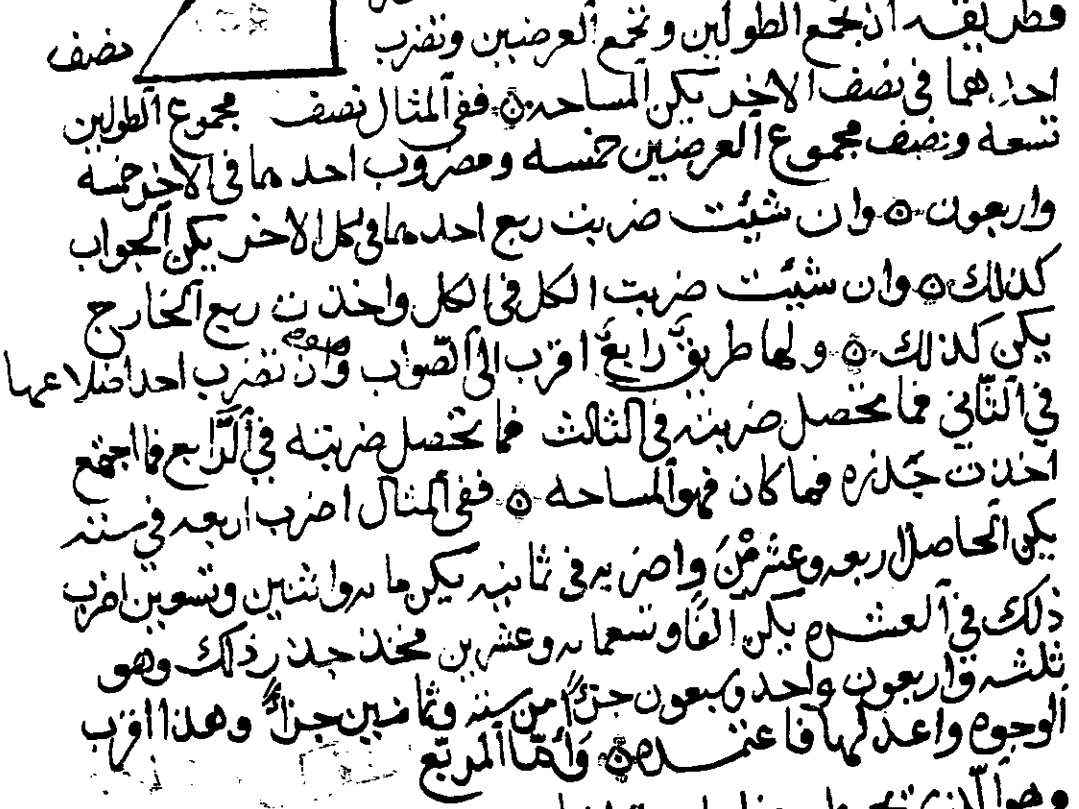 فطريقه ان تجمع الطولين وتجمع العرضين وتضرب نصف
احدهما في نصف الاخر يكن المساحه ففي المثال نصف مجموع الطولين
تسعة ونصف مجموع العرضين خمسه ومضروب احدهما في الاخر خمسه
واربعون وان شئت ضربت ربع احدهما في كل الاخر يكن الجواب
كذلك وان شئت ضربت الكل في الكل واخذت ربع الخارج
يكن كذلك ولها طريق رابع اقرب الى الصواب وهو ان تضرب احد اضلاعها
في الثاني فما تحصل ضربته في الثالث فما تحصل ضربته في الرابع فما اجتمع
اخذت جذره فما كان فهو المساحه ففي المثال اضرب اربعه في سته
يكن الحاصل اربعه وعشرين واضربه في ثمانيه يكن مايه واثنين وتسعين اضرب
ذلك في العشره يكن الفا وتسعمايه وعشرين فخذ جذر ذلك وهو
ثلثه واربعون واحد وسبعون جزءا من سته وثمانين جزءا وهذا اقرب
الوجوه واعدلها فاعتمده واما المربع